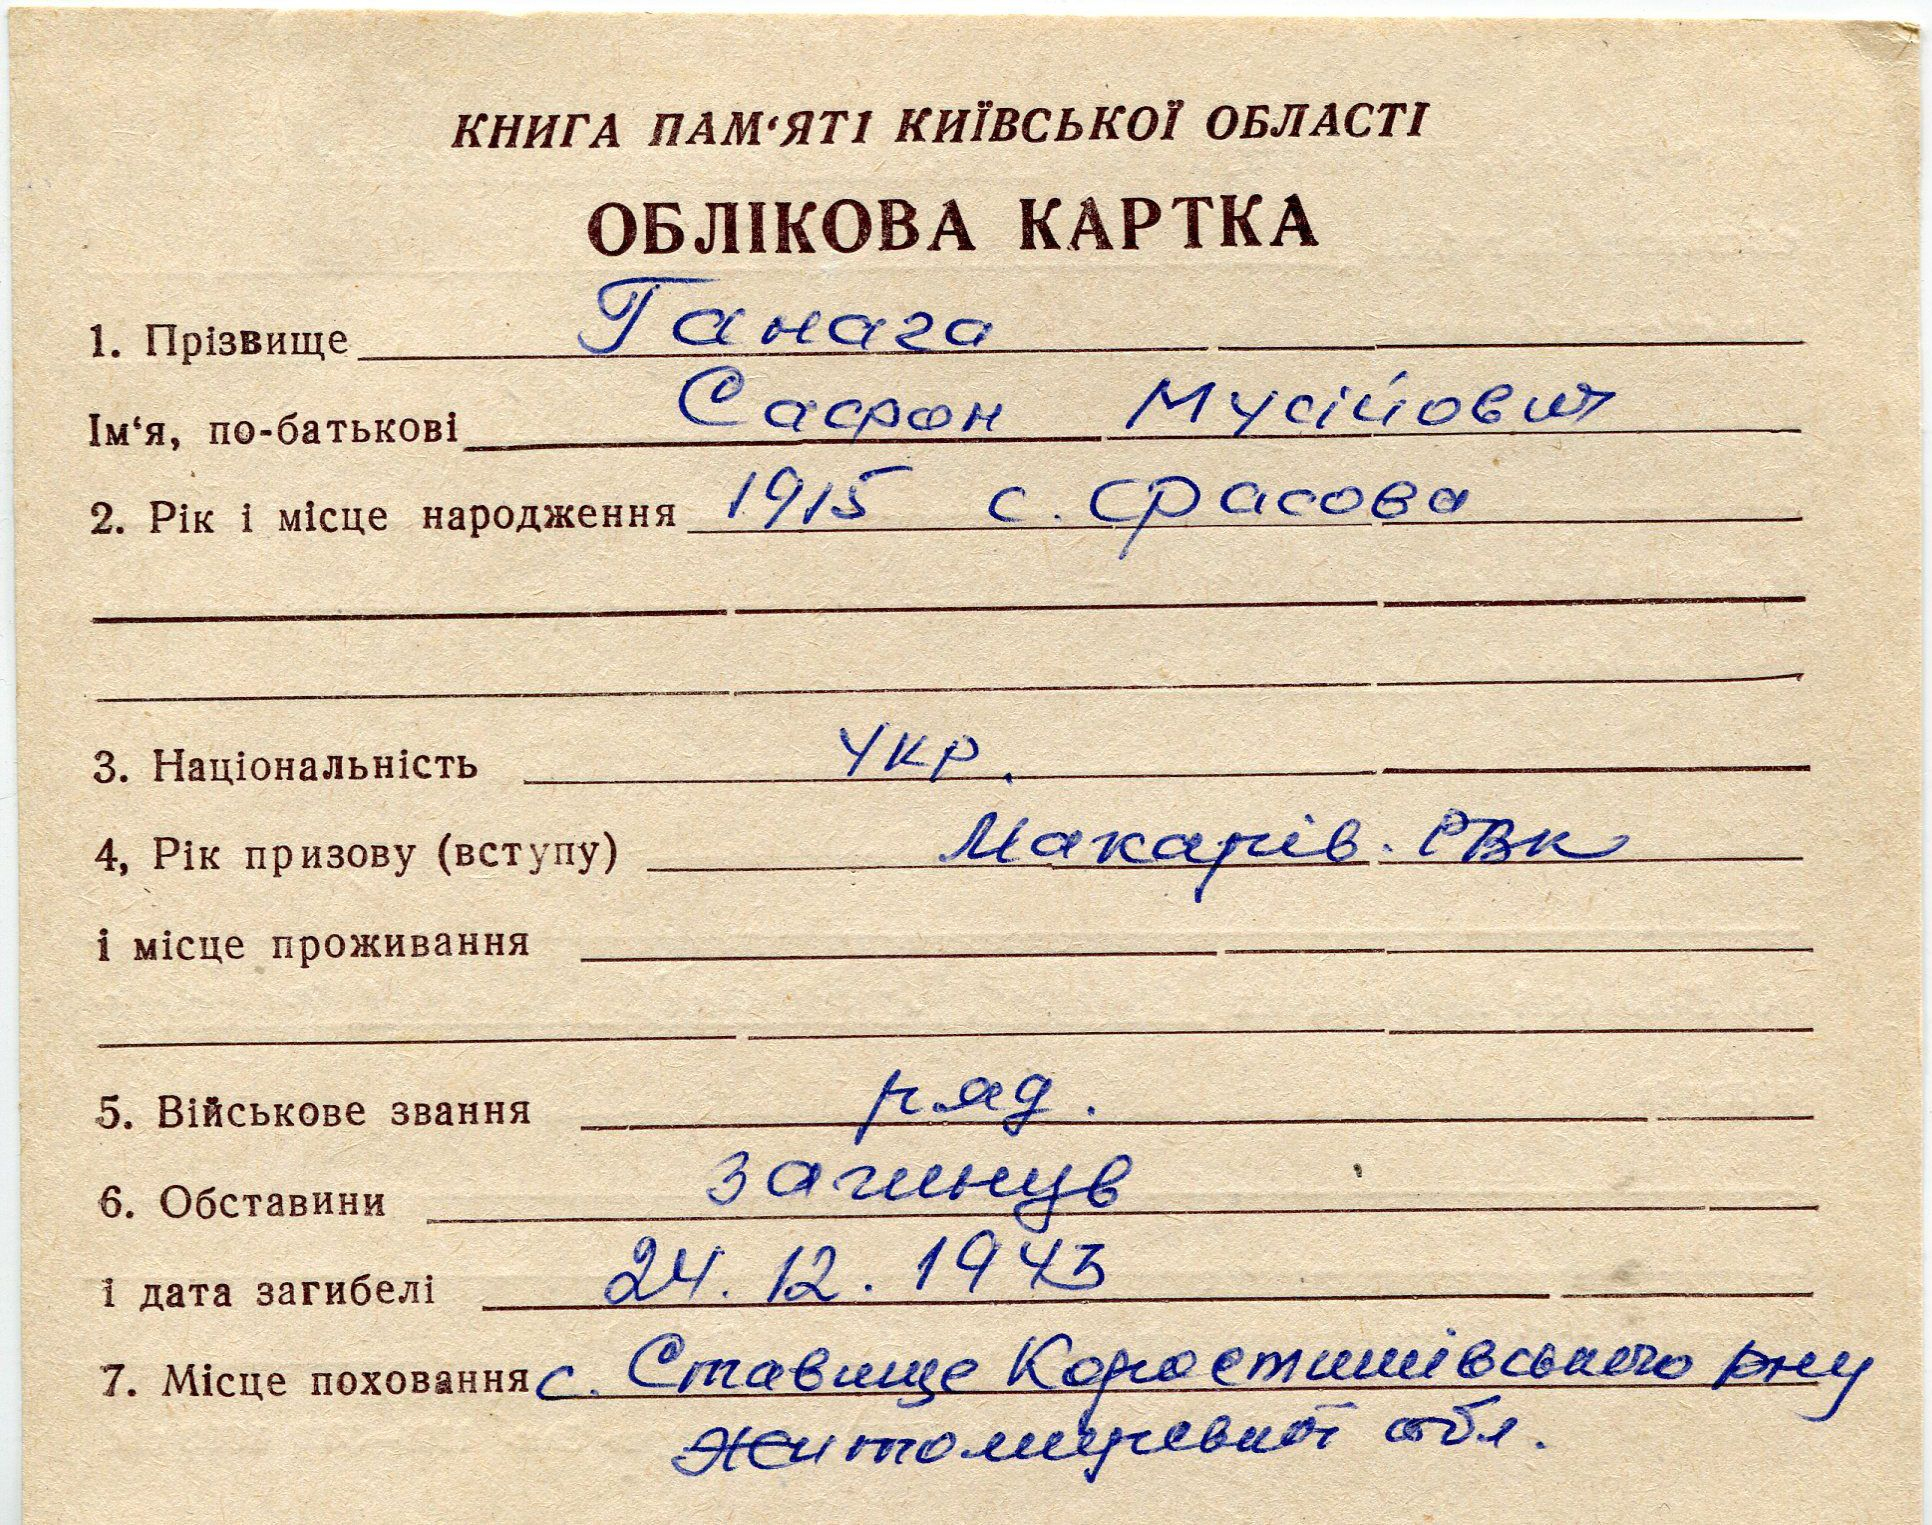 КНИГА ПАМ‘ЯТІ КИЇВСЬКОЇ ОБЛАСТІ
ОБЛІКОВА КАРТКА
1. Прізвище Ганага
Ім‘я, по-батькові Сафрон Мусійович
2. Рік і місце народження 1915 с. Фасова
3. Національність укр.
4, Рік призову (вступу) Макарів. РВК
і місце проживання
5. Військове звання ряд.
6. Обставини загинув
і дата загибелі 24.12.1943
7. Місце поховання с. Ставище Коростишівського рну
Житомирської обл.